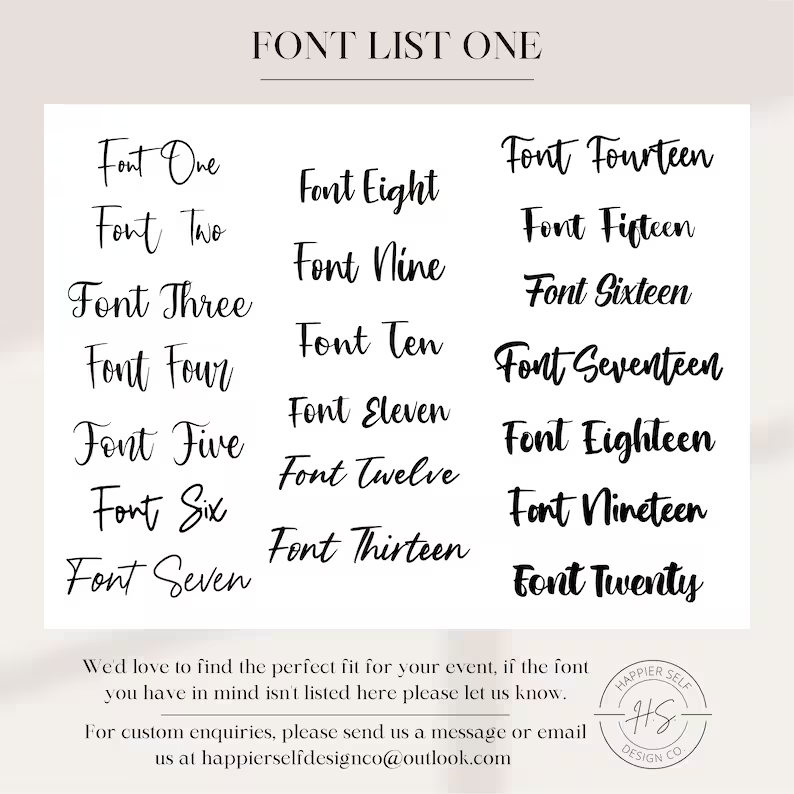 FONT LIST ONE
Font One
Font Two
Font Three
Font Four
Font Five
Font Six
Font Seven
Font Eight
Font Nine
Font Ten
Font Eleven
Font Twelve
Font Thirteen
Font Fourteen
Font Fifteen
Font Sixteen
Font Seventeen
Font Eighteen
Font Nineteen
Font Twenty
We'd love to find the perfect fit for your event, if the font
you have in mind isn't listed here please let us know.
For custom enquiries, please send us a message or email
us at happierselfdesignco@outlook.com
HAPPIER SELF
H.S.
DESIGN CO.